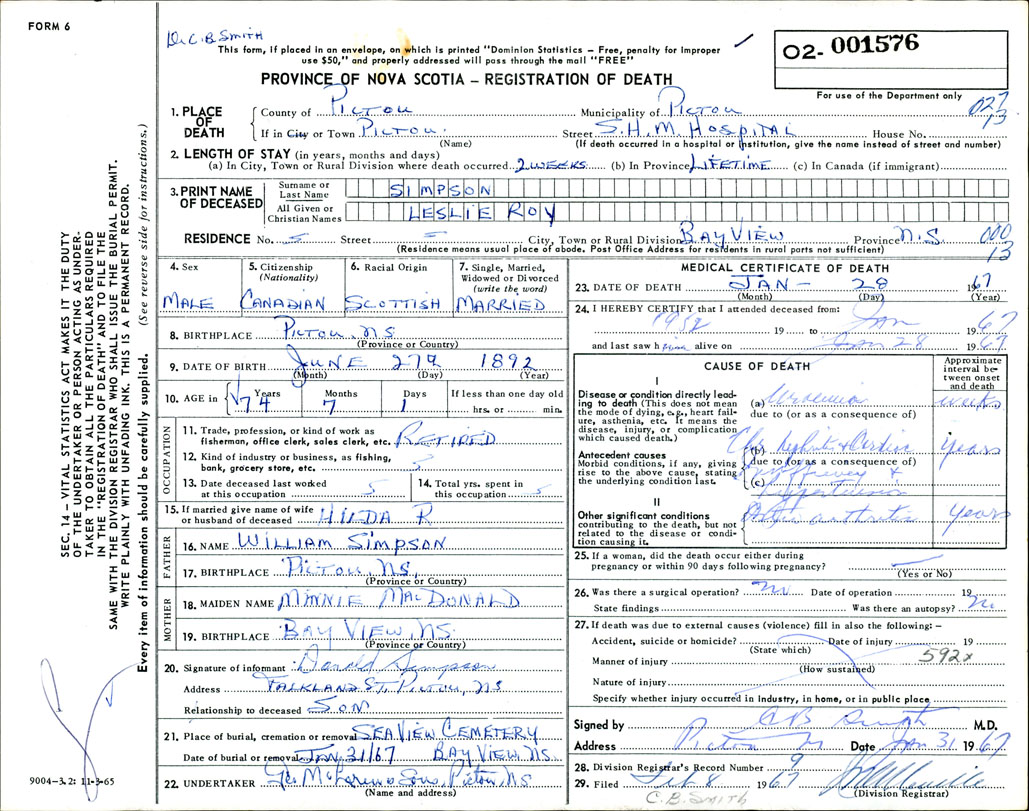 FORM 6
Dr. C. B. SMITH
This form, if placed in an envelope, on which is printed "Dominion Statistics – Free, penalty for improper
use $50," and properly addressed will pass through the mail "FREE"
02- 001576
For use of the Department only
PROVINCE OF NOVA SCOTIA – REGISTRATION OF DEATH
027
13
1. PLACE OF DEATH
County of PICTOU Municipality of PICTOU
If in City or Town PICTOU. Street S.H.M. HOSPITAL House No.
(Name) (If death occurred in a hospital or institution, give the name instead of street and number)
2. LENGTH OF STAY (in years, months and days)
(a) In City, Town or Rural Division where death occurred 2 WEEKS (b) In Province LIFETIME (c) In Canada (if immigrant)
3. PRINT NAME OF DECEASED
Surname or Last Name SIMPSON
All Given or Christian Names LESLIE ROY
RESIDENCE No. Street City, Town or Rural Division BAY VIEW Province N.S
(Residence means usual place of abode. Post Office Address for residents in rural parts not sufficient)
000
13
4. Sex MALE
5. Citizenship (Nationality) CANADIAN
6. Racial Origin SCOTTISH
7. Single, Married, Widowed or Divorced (write the word) MARRIED
8. BIRTHPLACE PICTOU, NS
(Province or Country)
9. DATE OF BIRTH JUNE 27th 1892
(Month) (Day) (Year)
10. AGE in Years 74 Months 7 Days 1 If less than one day old hrs. or min.
OCCUPATION
11. Trade, profession, or kind of work as fisherman, office clerk, sales clerk, etc. RETIRED
12. Kind of industry or business, as fishing, bank, grocery store, etc.
13. Date deceased last worked at this occupation
14. Total yrs. spent in this occupation
15. If married give name of wife or husband of deceased HILDA R
FATHER
16. NAME WILLIAM SIMPSON
17. BIRTHPLACE PICTOU, NS.
(Province or Country)
MOTHER
18. MAIDEN NAME MINNIE MACDONALD
19. BIRTHPLACE BAY VIEW, NS.
(Province or Country)
20. Signature of informant Simpson
Address FALKLAND ST, PICTOU, NS
Relationship to deceased SON
21. Place of burial, cremation or removal SEAVIEW CEMETERY
Date of burial or removal JAN, 31/67 BAY VIEW NS.
22. UNDERTAKER Sons, Pictou, NS
(Name and address)
MEDICAL CERTIFICATE OF DEATH
23. DATE OF DEATH JAN – 28 1967
(Month) (Day) (Year)
24. I HEREBY CERTIFY that I attended deceased from:
1952 19 to Jan 1967
and last saw him alive on Jan 28 1967
CAUSE OF DEATH
Approximate interval between onset and death
I
Disease or condition directly leading to death (This does not mean the mode of dying, e.g., heart failure, asthenia, etc. It means the disease, injury, or complication which caused death.)
(a) Uraemia weeks
due to (or as a consequence of)
Antecedent causes
Morbid conditions, if any, giving rise to the above cause, stating the underlying condition last.
(b) Nephritis years
due to (or as a consequence of)
(c) Hypertension
II
Other significant conditions
contributing to the death, but not related to the disease or condition causing it.
arthritis years
25. If a woman, did the death occur either during
pregnancy or within 90 days following pregnancy?
(Yes or No)
26. Was there a surgical operation? no Date of operation 19
State findings Was there an autopsy? no
27. If death was due to external causes (violence) fill in also the following: –
Accident, suicide or homicide? Date of injury 19
(State which)
592x
Manner of injury
(How sustained)
Nature of injury
Specify whether injury occurred in Industry, in home, or in public place
Signed by C B Smith M.D.
Address Pictou Date Jan 31 1967
28. Division Registrar's Record Number 9
29. Filed Feb 8 1967
(Division Registrar)
C. B. SMITH
SEC. 14 – VITAL STATISTICS ACT MAKES IT THE DUTY
OF THE UNDERTAKER OR PERSON ACTING AS UNDER-
TAKER TO OBTAIN ALL THE PARTICULARS REQUIRED
IN THE "REGISTRATION OF DEATH" AND TO FILE THE
SAME WITH THE DIVISION REGISTRAR WHO SHALL ISSUE THE BURIAL PERMIT.
WRITE PLAINLY WITH UNFADING INK. THIS IS A PERMANENT RECORD.
Every item of information should be carefully supplied. (See reverse side for instructions.)
9004–3.2: 11-3-65